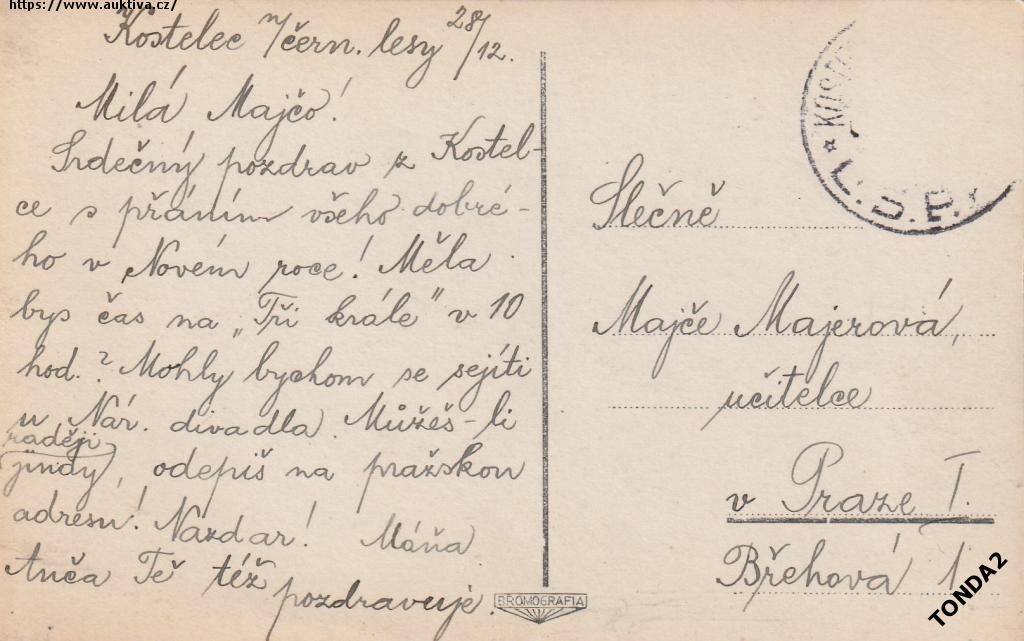 https://www.auktiva.cz/
Kostelec n/čern. lesy 28/12.
Milá Majčo!
Srdečný pozdrav z Kostel-
ce s přáním všeho dobré-
ho v Novém roce! Měla
bys čas na „Tři krále" v 10
hod.? Mohly bychom se sejíti
u Nár. divadla. Můžeš-li
raději
jindy, odepiš na pražskou
adresu! Nazdar! Máňa
Anča Tě též
pozdravuje.
BROMOGRAFIA
Slečně
Majče Majerová,
učitelce
v Praze I.
Břehová 1
TONDA2